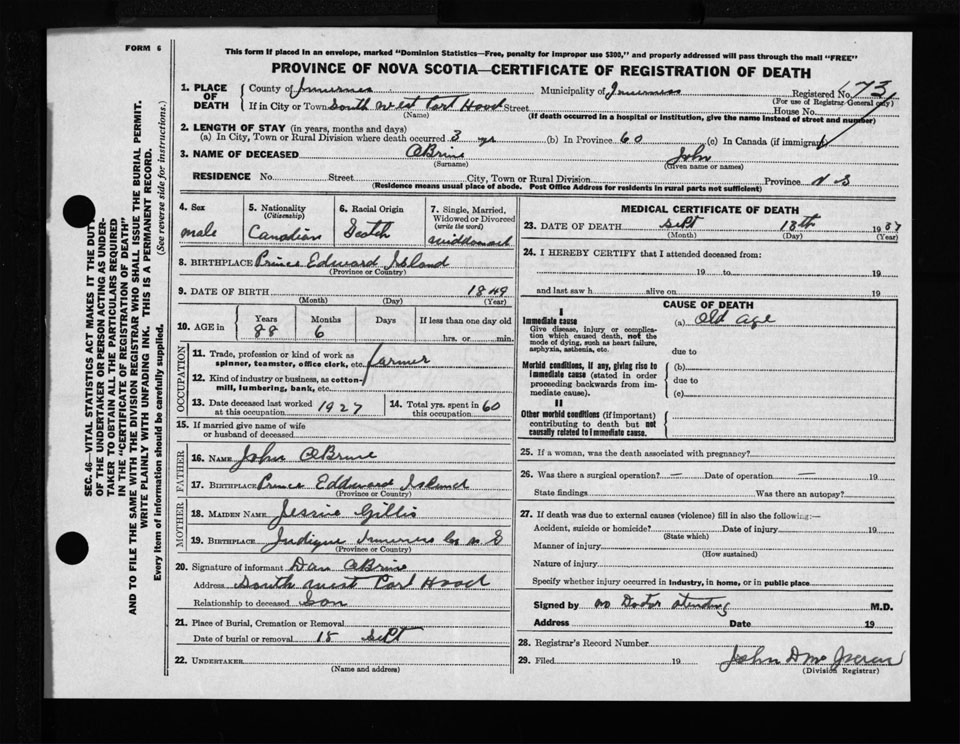 FORM 6
This form if placed in an envelope, marked "Dominion Statistics—Free, penalty for improper use $300," and properly addressed will pass through the mail "FREE"
PROVINCE OF NOVA SCOTIA—CERTIFICATE OF REGISTRATION OF DEATH
SEC. 46—VITAL STATISTICS ACT MAKES IT THE DUTY
OF THE UNDERTAKER OR PERSON ACTING AS UNDER-
TAKER TO OBTAIN ALL THE PARTICULARS REQUIRED
IN THE "CERTIFICATE OF REGISTRATION OF DEATH"
AND TO FILE THE SAME WITH THE DIVISION REGISTRAR WHO SHALL ISSUE THE BURIAL PERMIT.
WRITE PLAINLY WITH UNFADING INK. THIS IS A PERMANENT RECORD.
Every item of information should be carefully supplied. (See reverse side for instructions.)
1. PLACE OF DEATH
County of Inverness Municipality of Inverness Registered No. 731
(For use of Registrar General only)
If in City or Town South West Port Hood Street House No.
(Name) (If death occurred in a hospital or institution, give the name instead of street and number)
2. LENGTH OF STAY (in years, months and days)
(a) In City, Town or Rural Division where death occurred 3 yr (b) In Province 60 (c) In Canada (if immigrant)
3. NAME OF DECEASED OBrine John
(Surname) (Given name or names)
RESIDENCE No. Street City, Town or Rural Division Province N S
(Residence means usual place of abode. Post Office Address for residents in rural parts not sufficient)
4. Sex
male
5. Nationality
(Citizenship)
Canadian
6. Racial Origin
Scotch
7. Single, Married,
Widowed or Divorced
(write the word)
8. BIRTHPLACE Prince Edward Island
(Province or Country)
9. DATE OF BIRTH 1849
(Month) (Day) (Year)
10. AGE in
Years Months Days If less than one day old
88 6 hrs. or min.
OCCUPATION
11. Trade, profession or kind of work as
spinner, teamster, office clerk, etc. farmer
12. Kind of industry or business, as cotton-
mill, lumbering, bank, etc.
13. Date deceased last worked
at this occupation 1927
14. Total yrs. spent in
this occupation 60
15. If married give name of wife
or husband of deceased
FATHER
16. NAME John OBrine
17. BIRTHPLACE Prince Edduward Island
(Province or Country)
MOTHER
18. MAIDEN NAME Jessie Gillis
19. BIRTHPLACE Judique Inverness Co n S
(Province or Country)
20. Signature of informant Dan OBrine
Address South west Port Hood
Relationship to deceased Son
21. Place of Burial, Cremation or Removal
Date of burial or removal 18 Sept
22. UNDERTAKER
(Name and address)
MEDICAL CERTIFICATE OF DEATH
23. DATE OF DEATH Sept 18th 1937
(Month) (Day) (Year)
24. I HEREBY CERTIFY that I attended deceased from:
19 to 19
and last saw h alive on 19
CAUSE OF DEATH
I
Immediate cause
Give disease, injury or complica-
tion which caused death, not the
mode of dying, such as heart failure,
asphyxia, asthenia, etc.
(a) Old age
due to
Morbid conditions, if any, giving rise to
immediate cause (stated in order
proceeding backwards from im-
mediate cause).
(b)
due to
(c)
II
Other morbid conditions (if important)
contributing to death but not
causally related to immediate cause.
25. If a woman, was the death associated with pregnancy?
26. Was there a surgical operation? — Date of operation — 19
State findings Was there an autopsy?
27. If death was due to external causes (violence) fill in also the following:—
Accident, suicide or homicide? Date of injury 19
(State which)
Manner of injury
(How sustained)
Nature of injury
Specify whether injury occurred in industry, in home, or in public place
Signed by no Doctor atending M.D.
Address Date 19
28. Registrar's Record Number
29. Filed 19
(Division Registrar)